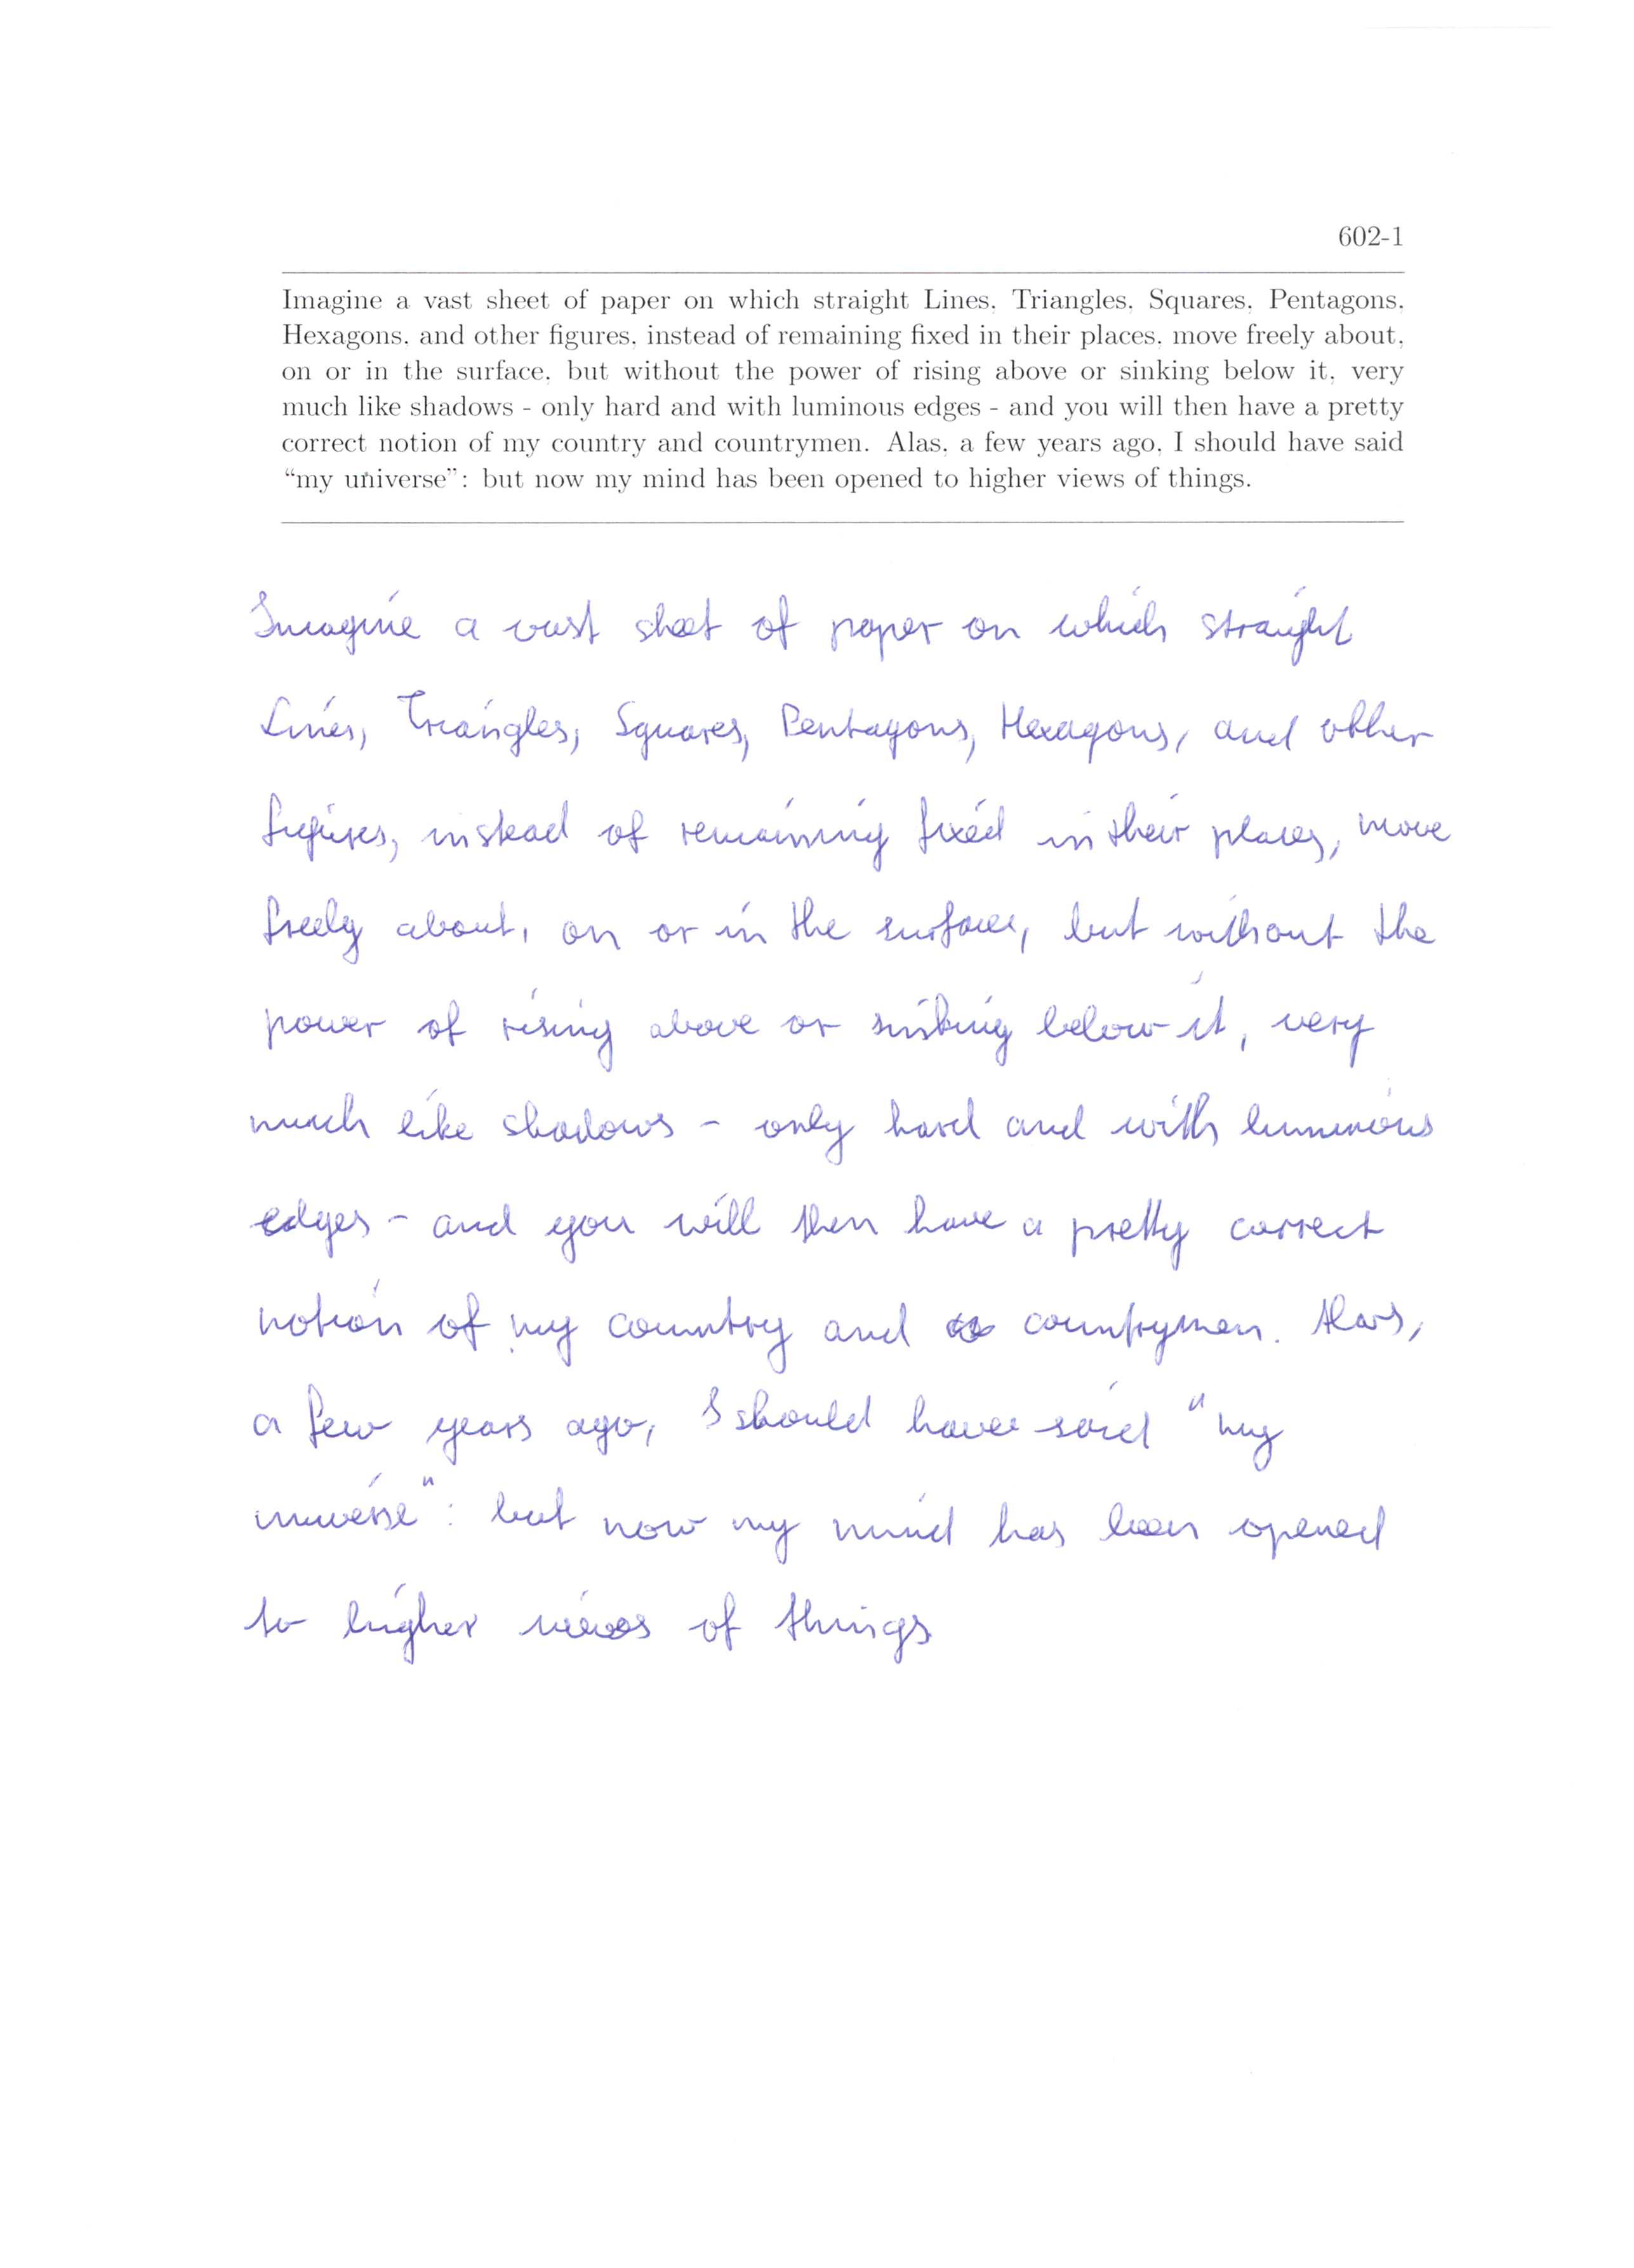 602-1
Imagine a vast sheet of paper on which straight Lines, Triangles, Squares, Pentagons,
Hexagons, and other figures, instead of remaining fixed in their places, move freely about,
on or in the surface, but without the power of rising above or sinking below it, very
much like shadows - only hard and with luminous edges - and you will then have a pretty
correct notion of my country and countrymen. Alas, a few years ago, I should have said
“my universe”: but now my mind has been opened to higher views of things.
Imagine a vast sheet of paper on which straight
Lines, Triangles, Squares, Pentagons, Hexagons, and other
figures, instead of remaining fixed in their places, move
freely about, on or in the surface, but without the
power of rising above or sinking below it, very
much like shadows - only hard and with luminous
edges - and you will then have a pretty correct
notion of my country and countrymen. Alas,
a few years ago, I should have said "my
universe": but now my mind has been opened
to higher views of things